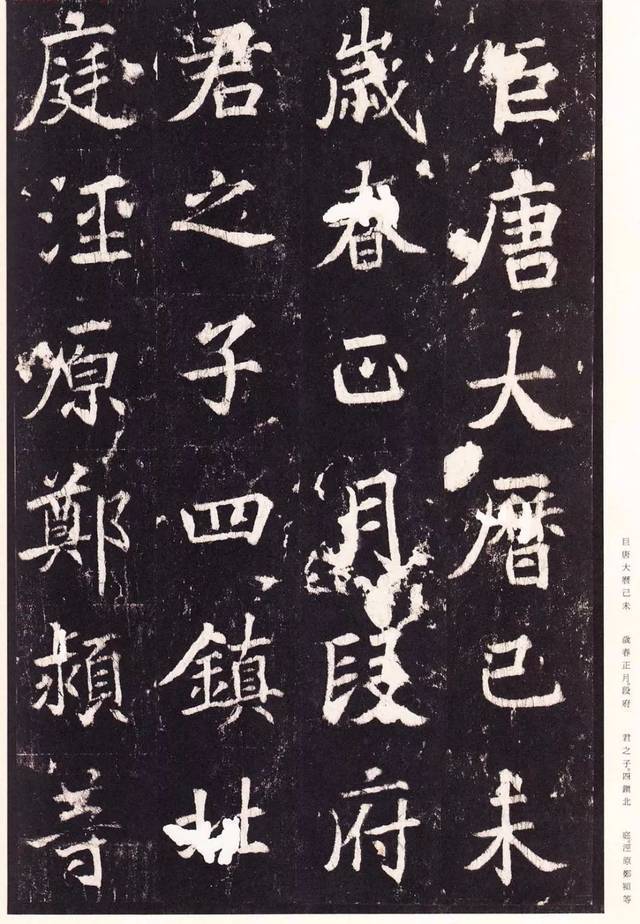 巨唐大曆己未
歲春正月段府
君之子四鎮北
庭涇原鄭潁等
巨唐大曆己未 歲春正月。段府 君之子。四鎮北 庭。涇原鄭潁等